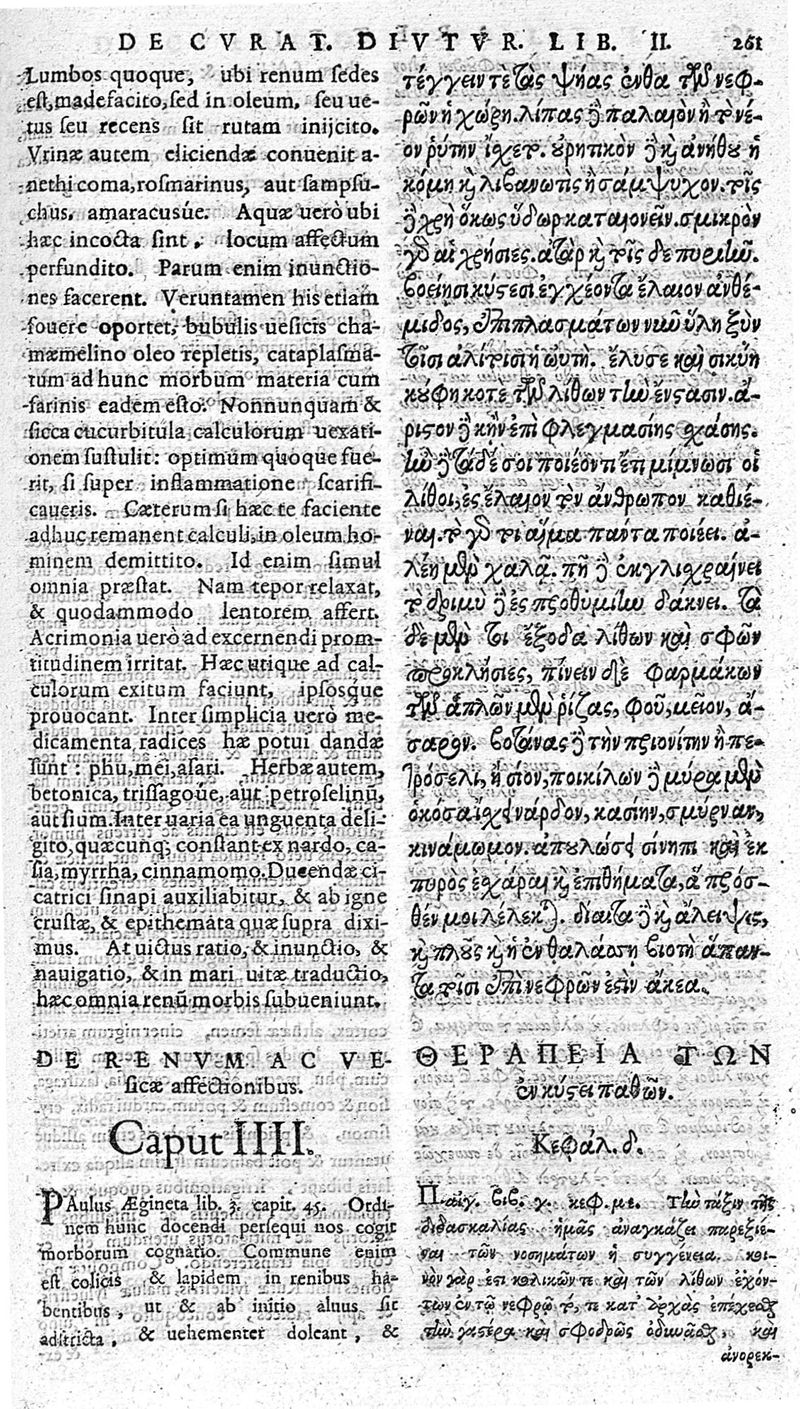 DE CVRAT. DIVTVR. LIB. II. 261
Lumbos quoque, ubi renum sedes
est, madefacito, sed in oleum, seu ue-
tus seu recens sit rutam inijcito.
Vrinæ autem eliciendæ conuenit a-
nethi coma, rosmarinus, aut sampsu-
chus, amaracusúe. Aquæ uerò ubi
hæc incocta sint, locum affectum
perfundito. Parum enim inunctio-
nes facerent. Veruntamen his etiam
fouere oportet, bubulis uesicis cha-
mæmelino oleo repletis, cataplasma-
tum ad hunc morbum materia cum
farinis eadem esto. Nonnunquam &
sicca cucurbitula calculorum uexati-
onem sustulit: optimum quoque fue-
rit, si super inflammatione scarifi-
caueris. Cæterum si hæc te faciente
adhuc remanent calculi, in oleum ho-
minem demittito. Id enim simul
omnia præstat. Nam tepor relaxat,
& quodammodo lentorem affert.
Acrimonia uerò ad excernendi prom-
titudinem irritat. Hæc utique ad cal-
culorum exitum faciunt, ipsosque
prouocant. Inter simplicia uerò me-
dicamenta, radices hæ potui dandæ
sunt: phu, mei, asari. Herbæ autem,
betonica, trissagoúe, aut petroselinũ,
aut sium. Inter uaria ea unguenta desi-
gito, quæcunq; constant ex nardo, ca-
sia, myrrha, cinnamomo. Ducendæ ci-
catrici sinapi auxiliabitur, & ab igne
crustæ, & epithemata quæ supra dixi-
mus. At uictus ratio, & inunctio, &
nauigatio, & in mari uitæ traductio,
hæc omnia renũ morbis subueniunt.
DE RENVM AC VE-
sicæ affectionibus.
Caput IIII.
PAulus Ægineta lib. 3. capit. 45. Ordi-
nem hunc docendi persequi nos cogit
morborum cognatio. Commune enim
est colicis & lapidem in renibus ha-
bentibus, ut & ab initio aluus sit
adstricta, & uehementer doleant, &
τέγγειν τε τὰς ψήας ἔνθα τῶν νεφ-
ρῶν ἡ χώρη. λίπας δὲ παλαιὸν ἢ τὸ νέ-
ον ῥύτην ἴσχετω. οὐρητικὸν δὲ καὶ ἀνήθου ἡ
κόμη καὶ λιβανωτὶς ἢ σάμψυχον. τοῖς
δὲ χρὴ ὅκως ὕδωρ καταιονεῖν. σμικρὸν
γὰρ αἱ χρήσιες. ἀτὰρ καὶ τοῖς δε πυριῆν.
βοείῃσι κύστεσι ἐγχέοντα ἔλαιον ἀνθέ-
μιδος, ἐπιπλασμάτων νιν ὕλη ξὺν
τοῖσι ἀλίτοισι ἡ ωὐτή. ἔλυσε καὶ σικύη
κούφη κοτὲ τῶν λίθων τὴν ἔνστασιν. ἄ-
ριστον δὲ κἢν ἐπὶ φλεγμασίης σχάσῃς.
ἢν δὲ τάδε σοι ποιέοντι ἐπιμίμνωσι οἱ
λίθοι, ἐς ἔλαιον τὸν ἄνθρωπον καθιέ-
ναι. τὸ γάρ τοι αἷμα πάντα ποιέει. ἀ-
λέη μὲν χαλᾷ. πῆ δὲ ἐκγλισχραίνει
τὸ δριμὺ δὲ ἐς προθυμίην δάκνει. τὰ
δε μὲν τοι ἔξοδα λίθων καὶ σφῶν
προκλήσιες, πίνειν δὲ φαρμάκων
τῶν ἁπλῶν μὲν ῥίζας, φοῦ, μεῖον, ἄ-
σαρον. βοτάνας δὲ τὴν πριονίτην ἢ πε-
τρόσελι, ἢ σίον, ποικίλων δὲ μύρα μὲν
ὁκόσα ἴσχει νάρδον, κασίην, σμύρναν,
κινάμωμον. ἀπουλώσει σίνηπι καὶ ἐκ
πυρὸς ἐσχάραι καὶ ἐπιθήματα, ἃ πρόσ-
θέν μοι λέλεκται. δίαιτα δὲ καὶ ἄλειψις,
καὶ πλοῦς καὶ ἡ ἐν θαλάσσῃ βιοτὴ ἅπαν-
τα τοῖσι ἐπὶ νεφρῶν ἐστὶν ἄκεα.
ΘΕΡΑΠΕΙΑ ΤΩΝ
ἐν κύστει παθῶν.
Κεφάλ. δ.
Παιγ. βιβ. γ. κεφ. με. Τὴν τάξιν τῆς
διδασκαλίας ἡμᾶς ἀναγκάζει παρεξιέ-
ναι τῶν νοσημάτων ἡ συγγένεια. κοι-
νὸν γάρ ἐστι κωλικῶν τε καὶ τῶν λίθων ἐχόν-
των ἐν τῷ νεφρῷ τό, τε κατ' ἀρχὰς ἐπέχεσθαι
τὴν γαστέρα καὶ σφοδρῶς ὀδυνᾶσθαι, καὶ
ἀνορεκ-